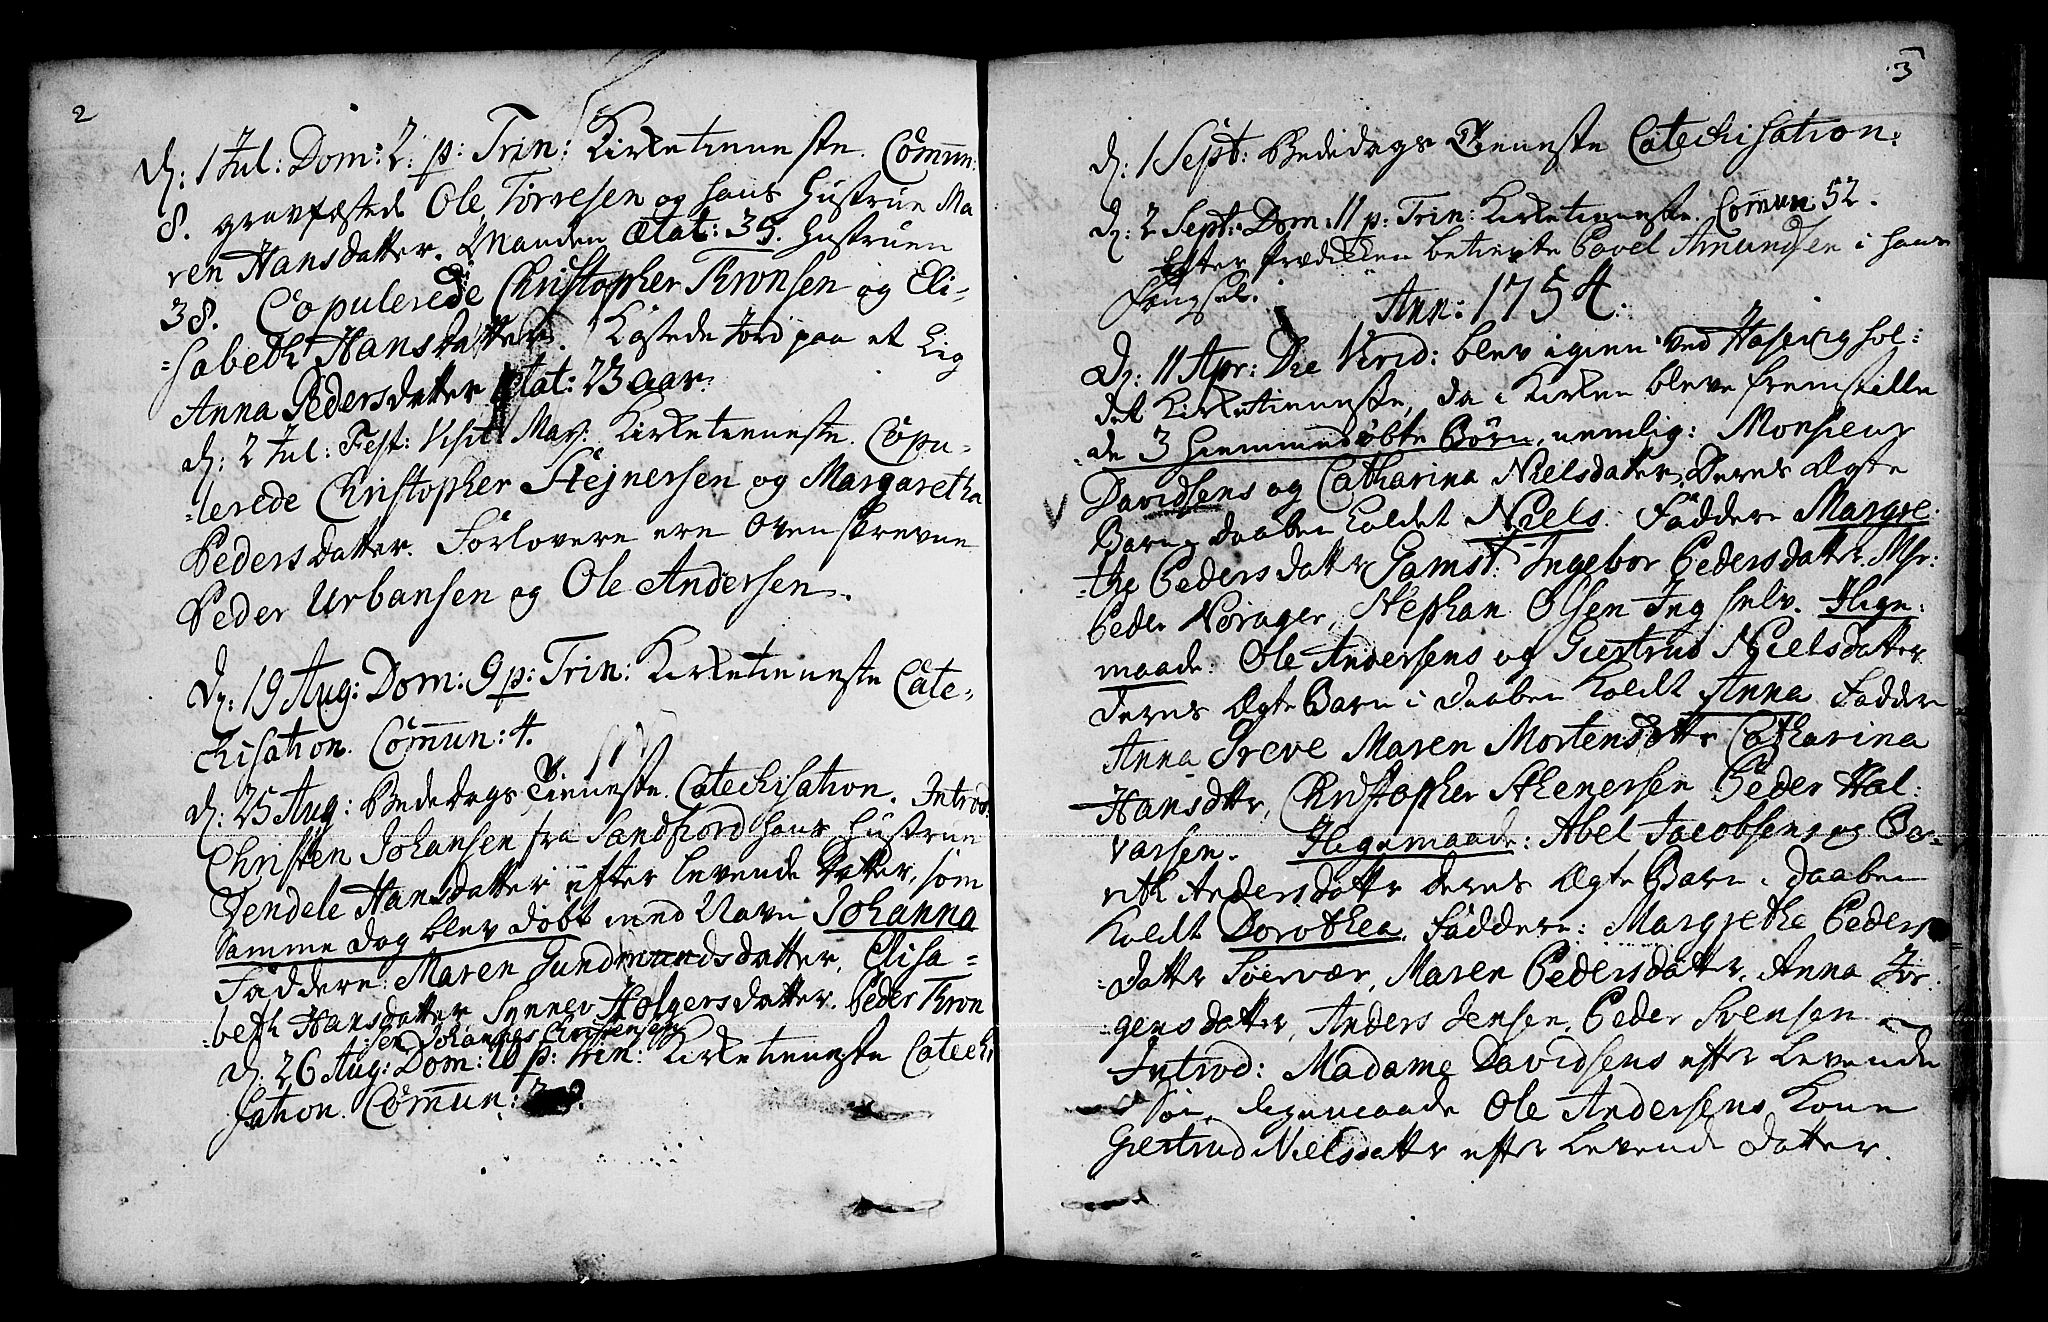 2
D: 1 Jul: Dom: 2: p: Trin: Kirketieneste. Commun:
8. gravfæstede Ole Torresen og hans Hustrue Ma
ren Hansdatter. Manden Ætat: 35. Hustruen
38. Copulerede Christopher Thronsen og Eli-
-sabeth Hansdatter. Kastede Jord paa et Lig
Anna Pedersdatter Ætat: 23 aar.
d: 2 Jul: Fest: Visit: Mar: Kirketieneste. Copu-
-lerede Christopher Stejnersen og Margaretha
Pedersdatter. Forlovere ere Ovenskrevne
Peder Urbansen og Ole Andersen.
D: 19 Aug: Dom: 9 p: Trin: Kirketieneste Cate-
chisation. Commun: 4.
d: 25 Aug: Bededags Tieneste. Catechisation. Introd:
Christen Johansen fra Sandfiord hans Hustrue
Vendele Hansdatter efter levende Datter, som
Samme dag blev døbt med Navn Johanna
Faddere: Maren Gundmundsdatter, Elisa-
-beth Hansdatter Synnev Holgersdatter. Peder Thron
-sen Johannes Christensen
d: 26 Aug: Dom: 10 p: Trin: Kirketieneste Catechi
sation. Commun:
3
D: 1 Sept: Bededags Tieneste Catechisation:
D: 2 Sept: Dom: 11 p: Trin: Kirketieneste. Commun: 52.
Efter Prædiken betiente Povel Amundsen i hans
Fængsel.
Ann: 1754.
D: 11 Apr: Die Virid: blev igien ved Hasvig hol-
det Kirketieneste, da i Kirken bleve fremstille
-de 3 Hiemmedøbte Børn, nemlig: Monsieur
Davidsens og Catharina Nielsdatter, Deres Ægte
V
Barn i daaben kaldet Niels. Faddere Margre-
-the Pedersdatter Gamst: Ingebor Pedersdatter. Mr:
Peder Norager, Stephan Olsen Jeg selv. Lige-
maade: Ole Andersens og Giertrud Nielsdatter
deres Ægte Barn i daaben kaldt Anna Faddere
Anna Greve Maren Mortensdatter Catharina
Hansdatter, Christopher Stenersen Peder Hal-
varsen. Ligemaade: Abel Jacobsens og Be-
rith Andersdatter deres Ægte Barn i daaben
kaldt Dorothea. Faddere: Margrethe Peders
-datter Soervær, Maren Pedersdatter, Anna Jør
-gensdatter, Anders Jensen, Peder Svensen
Introd: Madame Davidsens efter levende
Søn, ligemaade Ole Andersens Kone
Giertrud Nielsdatter efter levende datter.